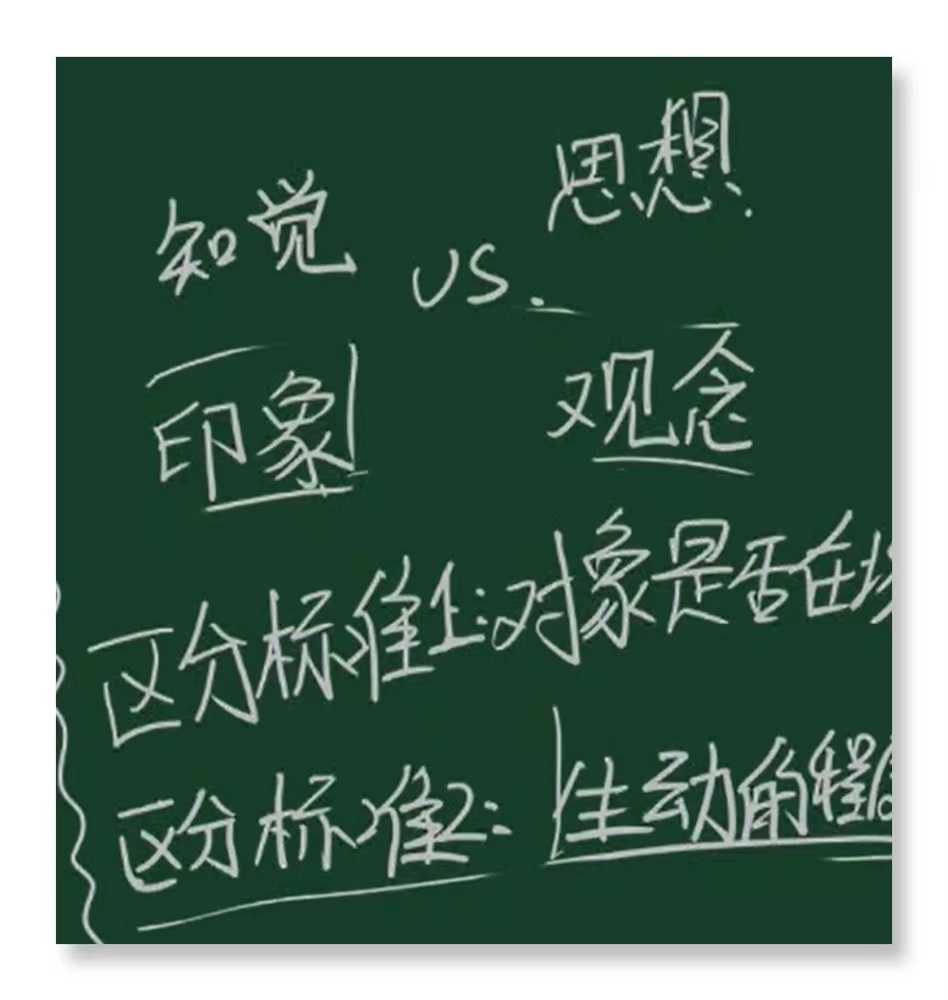 知觉 vs. 思想.
印象 观念
区分标准1:对象是否在场
区分标准2:生动的程度